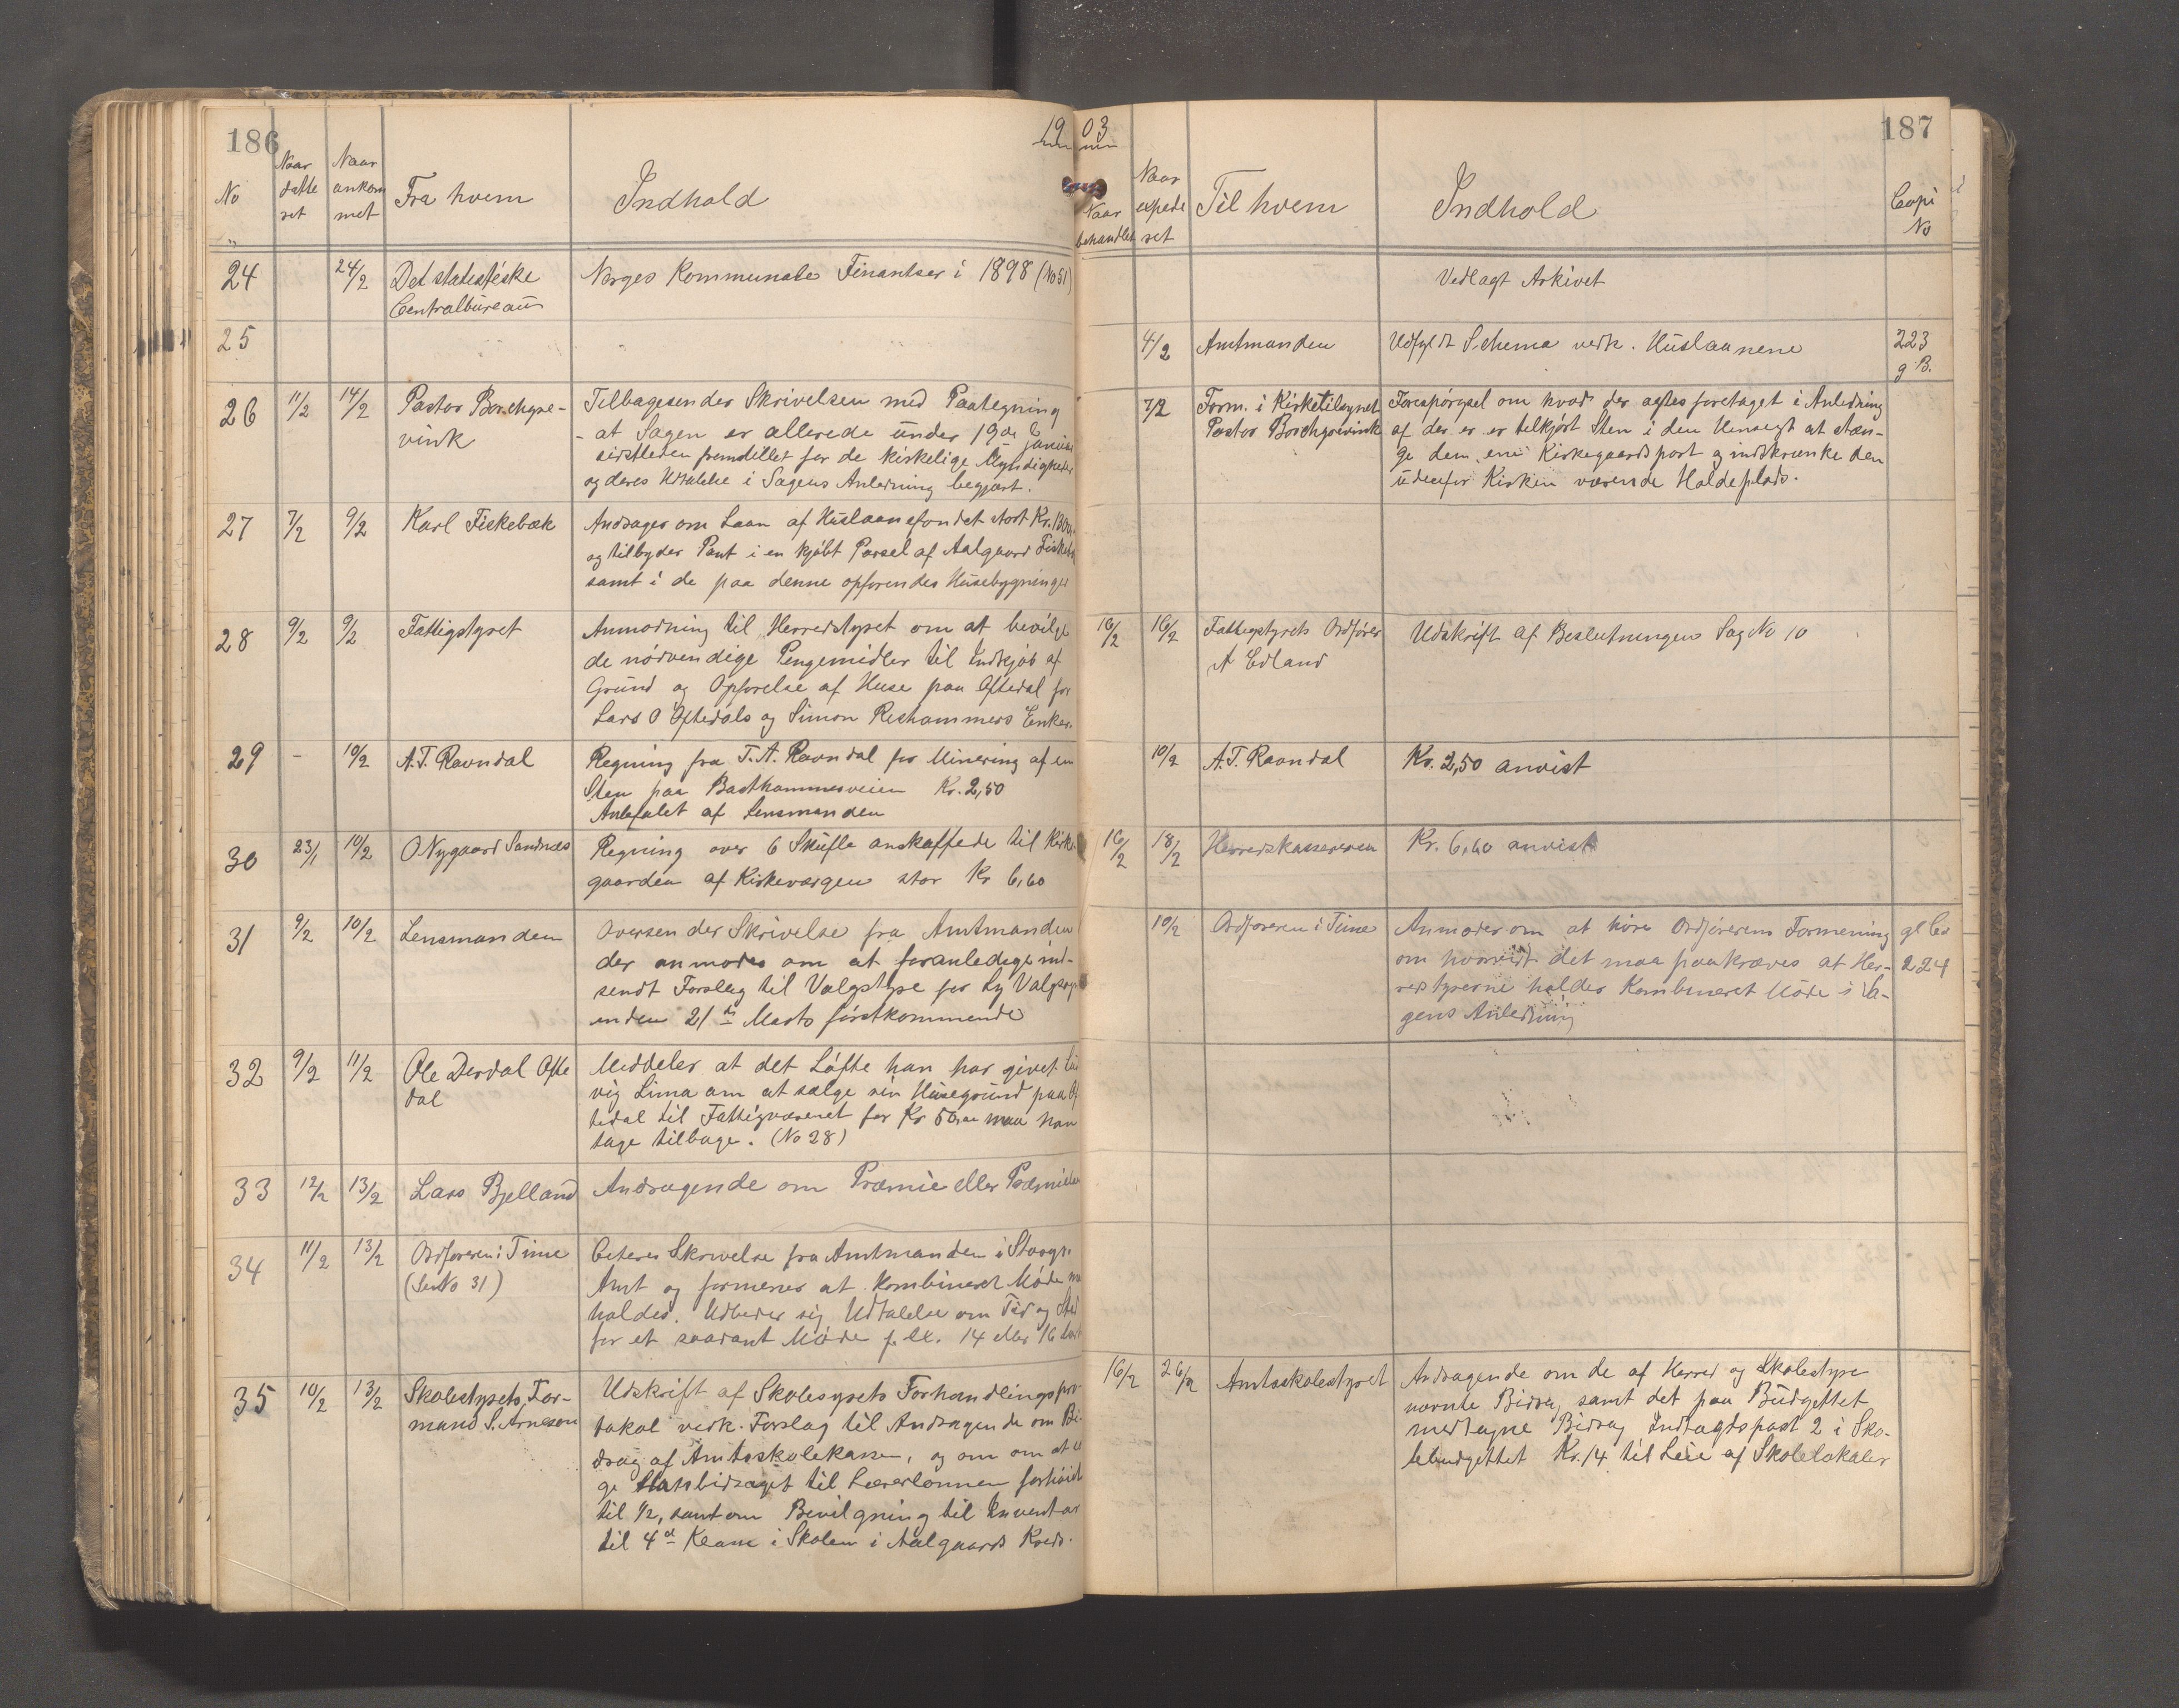 186
1903
No
Naar datteret
Naar ankommet
Fra hvem
Indhold
24
24/2
Det statistiske
Centralbureau
Norges Kommunale Finantser i 1898 (No 51)
25
26
11/2
14/2
Pastor Borchgre-
vink
Tilbagesender Skrivelsen med Paategning
- at Sagen er allerede under 19de
sidstleden fremstillet for de kirkelige Myndigheder
og deres Udtalelse i Sagens Anledning begjært.
27
7/2
9/2
Karl Fiskebæk
Andrager om Laan af Huslaanefondet stort Kr. 1300
og tilbyder Pant i en kjøbt Parsel af Aalgaard
samt i de paa denne opførendes Husebygninger
28
9/2
9/2
Fattigstyret
Anmodning til Herredstyret om at bevilge
de nødvendige Pengemidler til Indkjøb af
Grund og Opførelse af Huse paa Oftedal for
Lars O Oftedals og Simon Reshammers Enker.
29
-
10/2
A.T. Ravndal
Regning fra T.A. Ravndal for Minering af en
Sten paa Bastkammerveien Kr. 2,50
Anbefalet af Lensmanden
30
23/1
10/2
O Nygaard Sandnæs
Regning over 6 Skufle anskaffede til Kirke
gaarden af Kirkeværgen stor Kr 6,60
31
9/2
10/2
Lensmanden
Oversender Skrivelse fra Amtmanden
der anmodes om at foranledige ind-
sendt Forslag til Valgstyre for Ly Valgsogn
inden 21de Marts førstkommende
32
9/2
11/2
Ole Derdal Ofte
dal
Meddeler at det Løfte han har givet
vig Lima om at sælge sin Husegrund paa Of
tedal til Fattigvæsenet for Kr 50,00 maa han
tage tilbage. (No 28)
33
12/2
13/2
Lars Bjelland
Andragende om Præmie eller
34
11/2
13/2
Ordføreren i Time
(Se No 31)
Citerer Skrivelse fra Amtmanden i Stavgr.
Amt og formener at kombineret Møde maa
holdes. Udbeder sig Udtalelse om Tid og Sted
for et saadant Møde f. Ex. 14 eller 16
35
10/2
13/2
Skolestyrets For-
mand S. Arneson
Udskrift af Skolesyrets Forhandlingspro-
tokol vedk. Forslag til Andragende om Bi-
drag af Amtsskolekassen, og om om at
ge Statsbidraget til Lærerlønnen forhøiet
til 1/2, samt om Bevilgning til Inventar
til 4de Klasse i Skolen i Aalgaards Kreds.
187
Naar behandlet
Naar expederet
Til hvem
Indhold
Copi No
Vedlagt Arkivet
4/2
Amtmanden
Udfyldt Schema vedk. Huslaanene
223
g B.
7/2
Form. i Kirketilsynet
Pastor Borchgrevink
Forespørgsel om hvad der agtes foretaget i Anledning
af der er er tilkjørt Sten i den Hensegt at stæn-
ge den ene Kirkegaardsport og indskrænke den
udenfor Kirken værende Holdeplads.
16/2
16/2
Fattigstyrets Ordfører
A Edland
Udskrift af Beslutningen Sag No 10
10/2
A.T. Ravndal
Kr. 2,50 anvist
16/2
18/2
Herredskassereren
Kr. 6,60 anvist
10/2
Ordføreren i Time
Anmoder om at høre Ordførerens Formening
om hvorvidt det maa paakræves at Her-
redstyrerne holder Kombineret Møde i Sa-
gens Anledning
224
16/2
26/2
Amtsskolestyret
Andragende om de af Herred og Skolestyre
nævnte Bidrag samt det paa Budgettet
medtagne Bidrag Indtægtspost 2 i Sko-
lebudgettet Kr. 14 til Leie af Skolelokaler